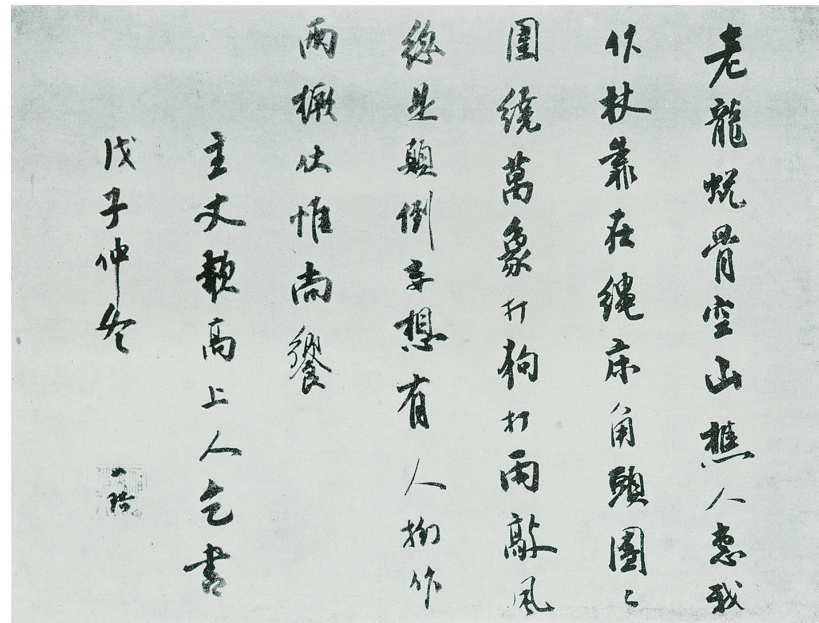 老龍蛻骨空山樵人惠我
作杖靠在繩床角頭團〻
圍繞萬象打狗打雨敲風
總是顛倒妄想有人拗作
兩橛伏惟尚饗
主丈歌高上人乞書
戊子仲冬